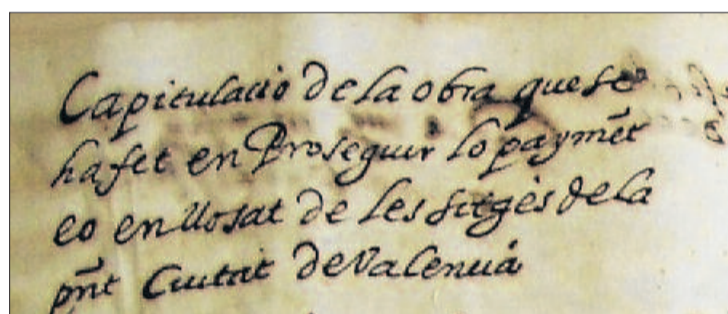 Capitulacio de la obra que se
ha fet en Proseguir lo paymēt
eo en llosat de les sitges de la
pn̄t Ciutat de Valencia